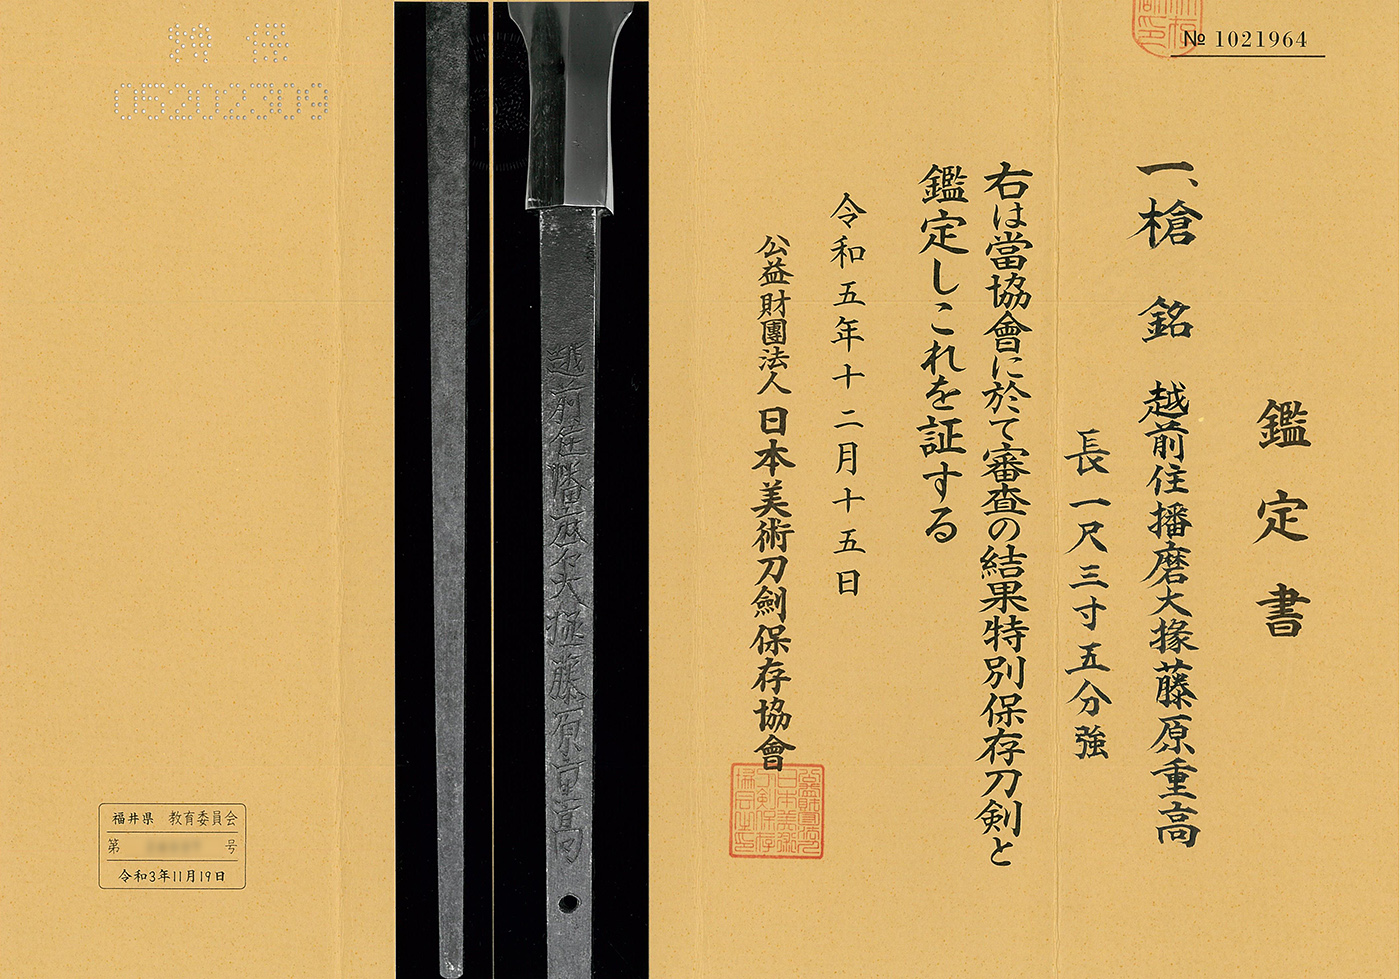 № 1021964
鑑定書
一、槍 銘 越前住播磨大掾藤原重高
長一尺三寸五分強
右は當協會に於て審査の結果特別保存刀剣と
鑑定しこれを証する
令和五年十二月十五日
公益財團法人日本美術刀劍保存協會
越前住播磨大掾藤原重高
05202309
福井県 教育委員会
第 号
令和3年11月19日